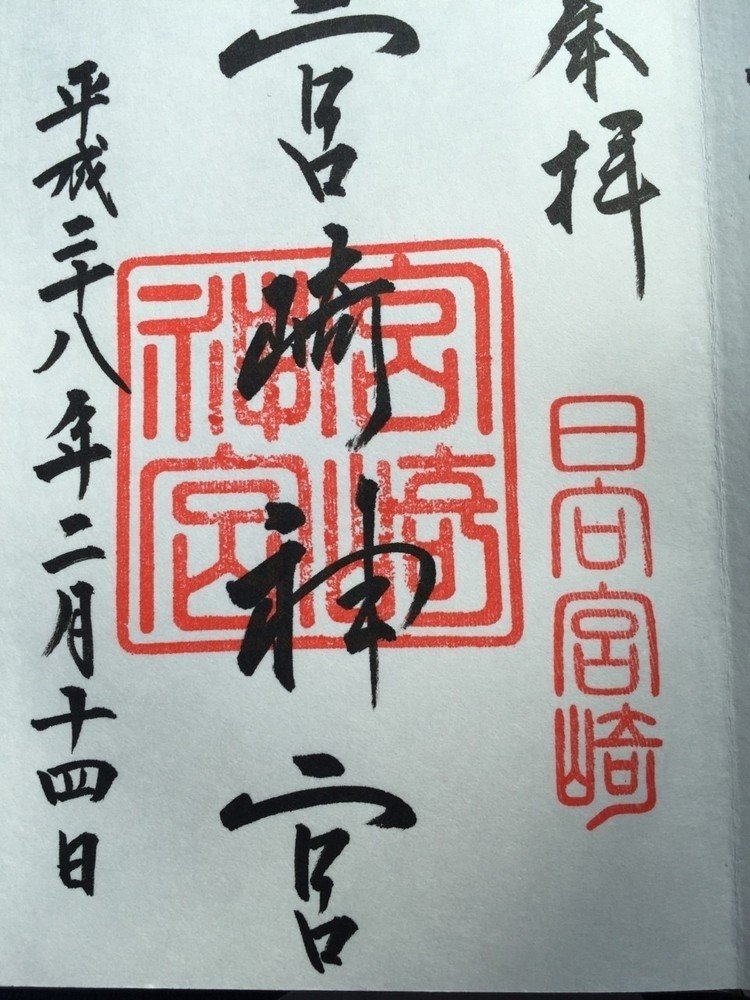 奉拝
日向宮崎
宮崎神宮
宮崎神宮
平成二十八年二月十四日